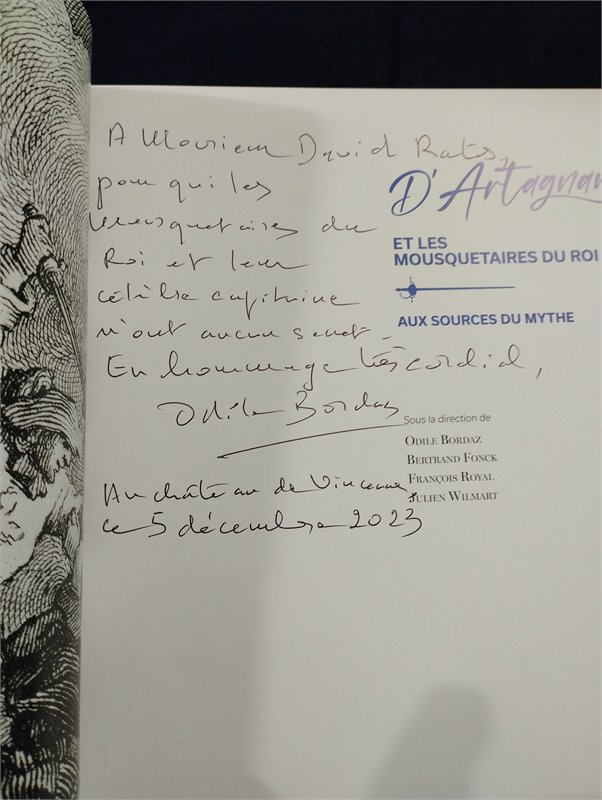 A Monsieur David Rats,
pour qui les
mousquetaires du
Roi et leur
célèbre capitaine
n'ont aucun secret.
En hommage très cordial,
Odile Bordaz
Au château de Vincennes,
le 5 décembre 2023
D'Artagnan
ET LES
MOUSQUETAIRES DU ROI
AUX SOURCES DU MYTHE
Sous la direction de
ODILE BORDAZ
BERTRAND FONCK
FRANÇOIS ROYAL
JULIEN WILMART